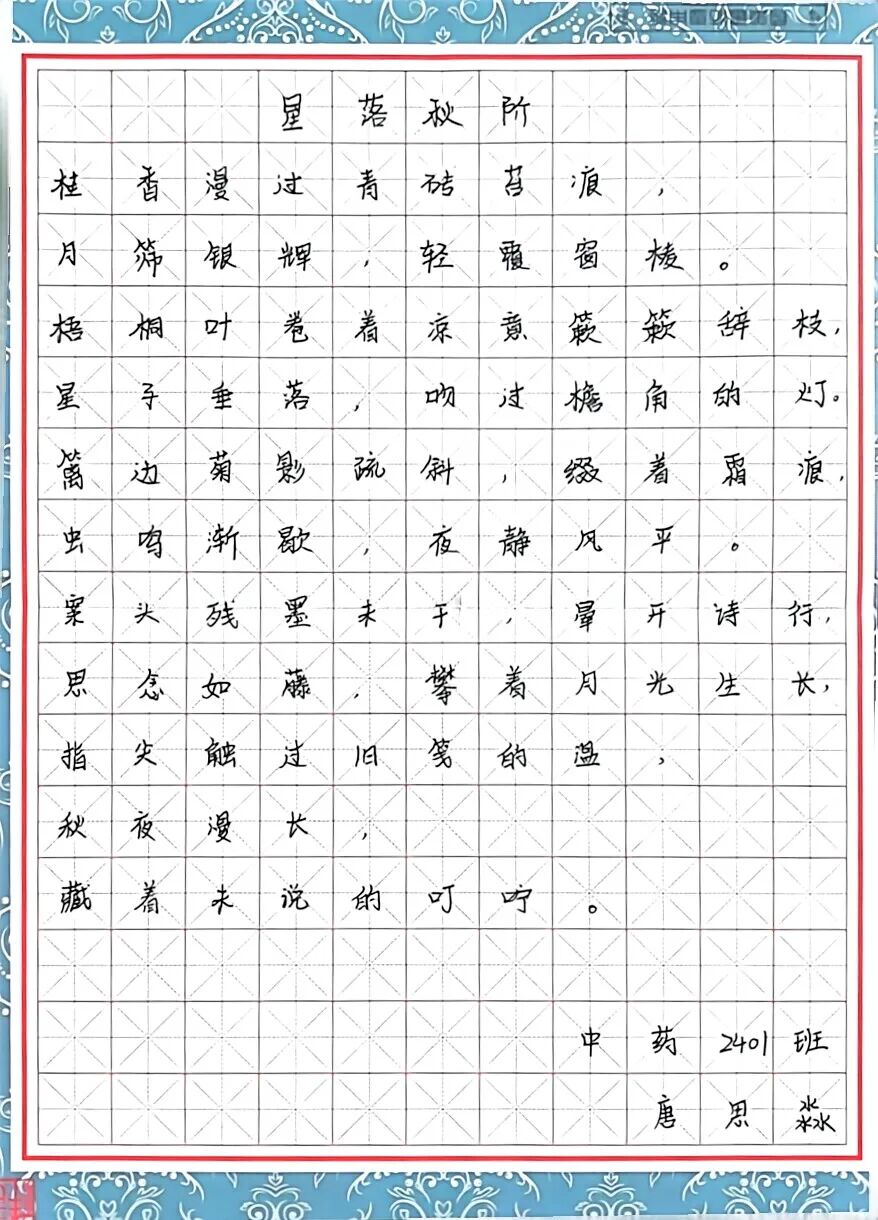 星落秋阶
桂香漫过青砖苔痕，
月筛银辉，轻覆窗棱。
梧桐叶卷着凉意簌簌辞枝，
星子垂落，吻过檐角的灯。
篱边菊影疏斜，缀着霜痕，
虫鸣渐歇，夜静风平。
案头残墨未干，晕开诗行，
思念如藤，攀着月光生长，
指尖触过旧笺的温，
秋夜漫长，
藏着未说的叮咛。
中药2401班
唐思淼